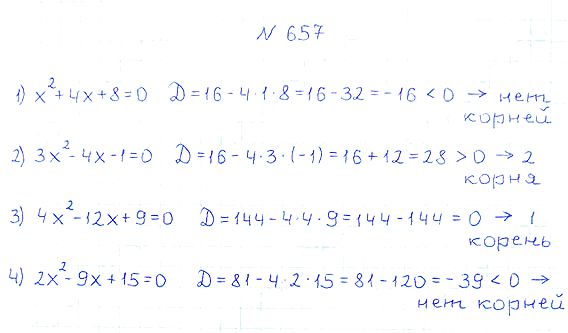 N 657
1) x²+4x+8=0 D=16-4·1·8=16-32=-16<0 → нет
корней
2) 3x²-4x-1=0 D=16-4·3·(-1)=16+12=28>0 → 2
корня
3) 4x²-12x+9=0 D=144-4·4·9=144-144=0 → 1
корень
4) 2x²-9x+15=0 D=81-4·2·15=81-120=-39<0 →
нет корней